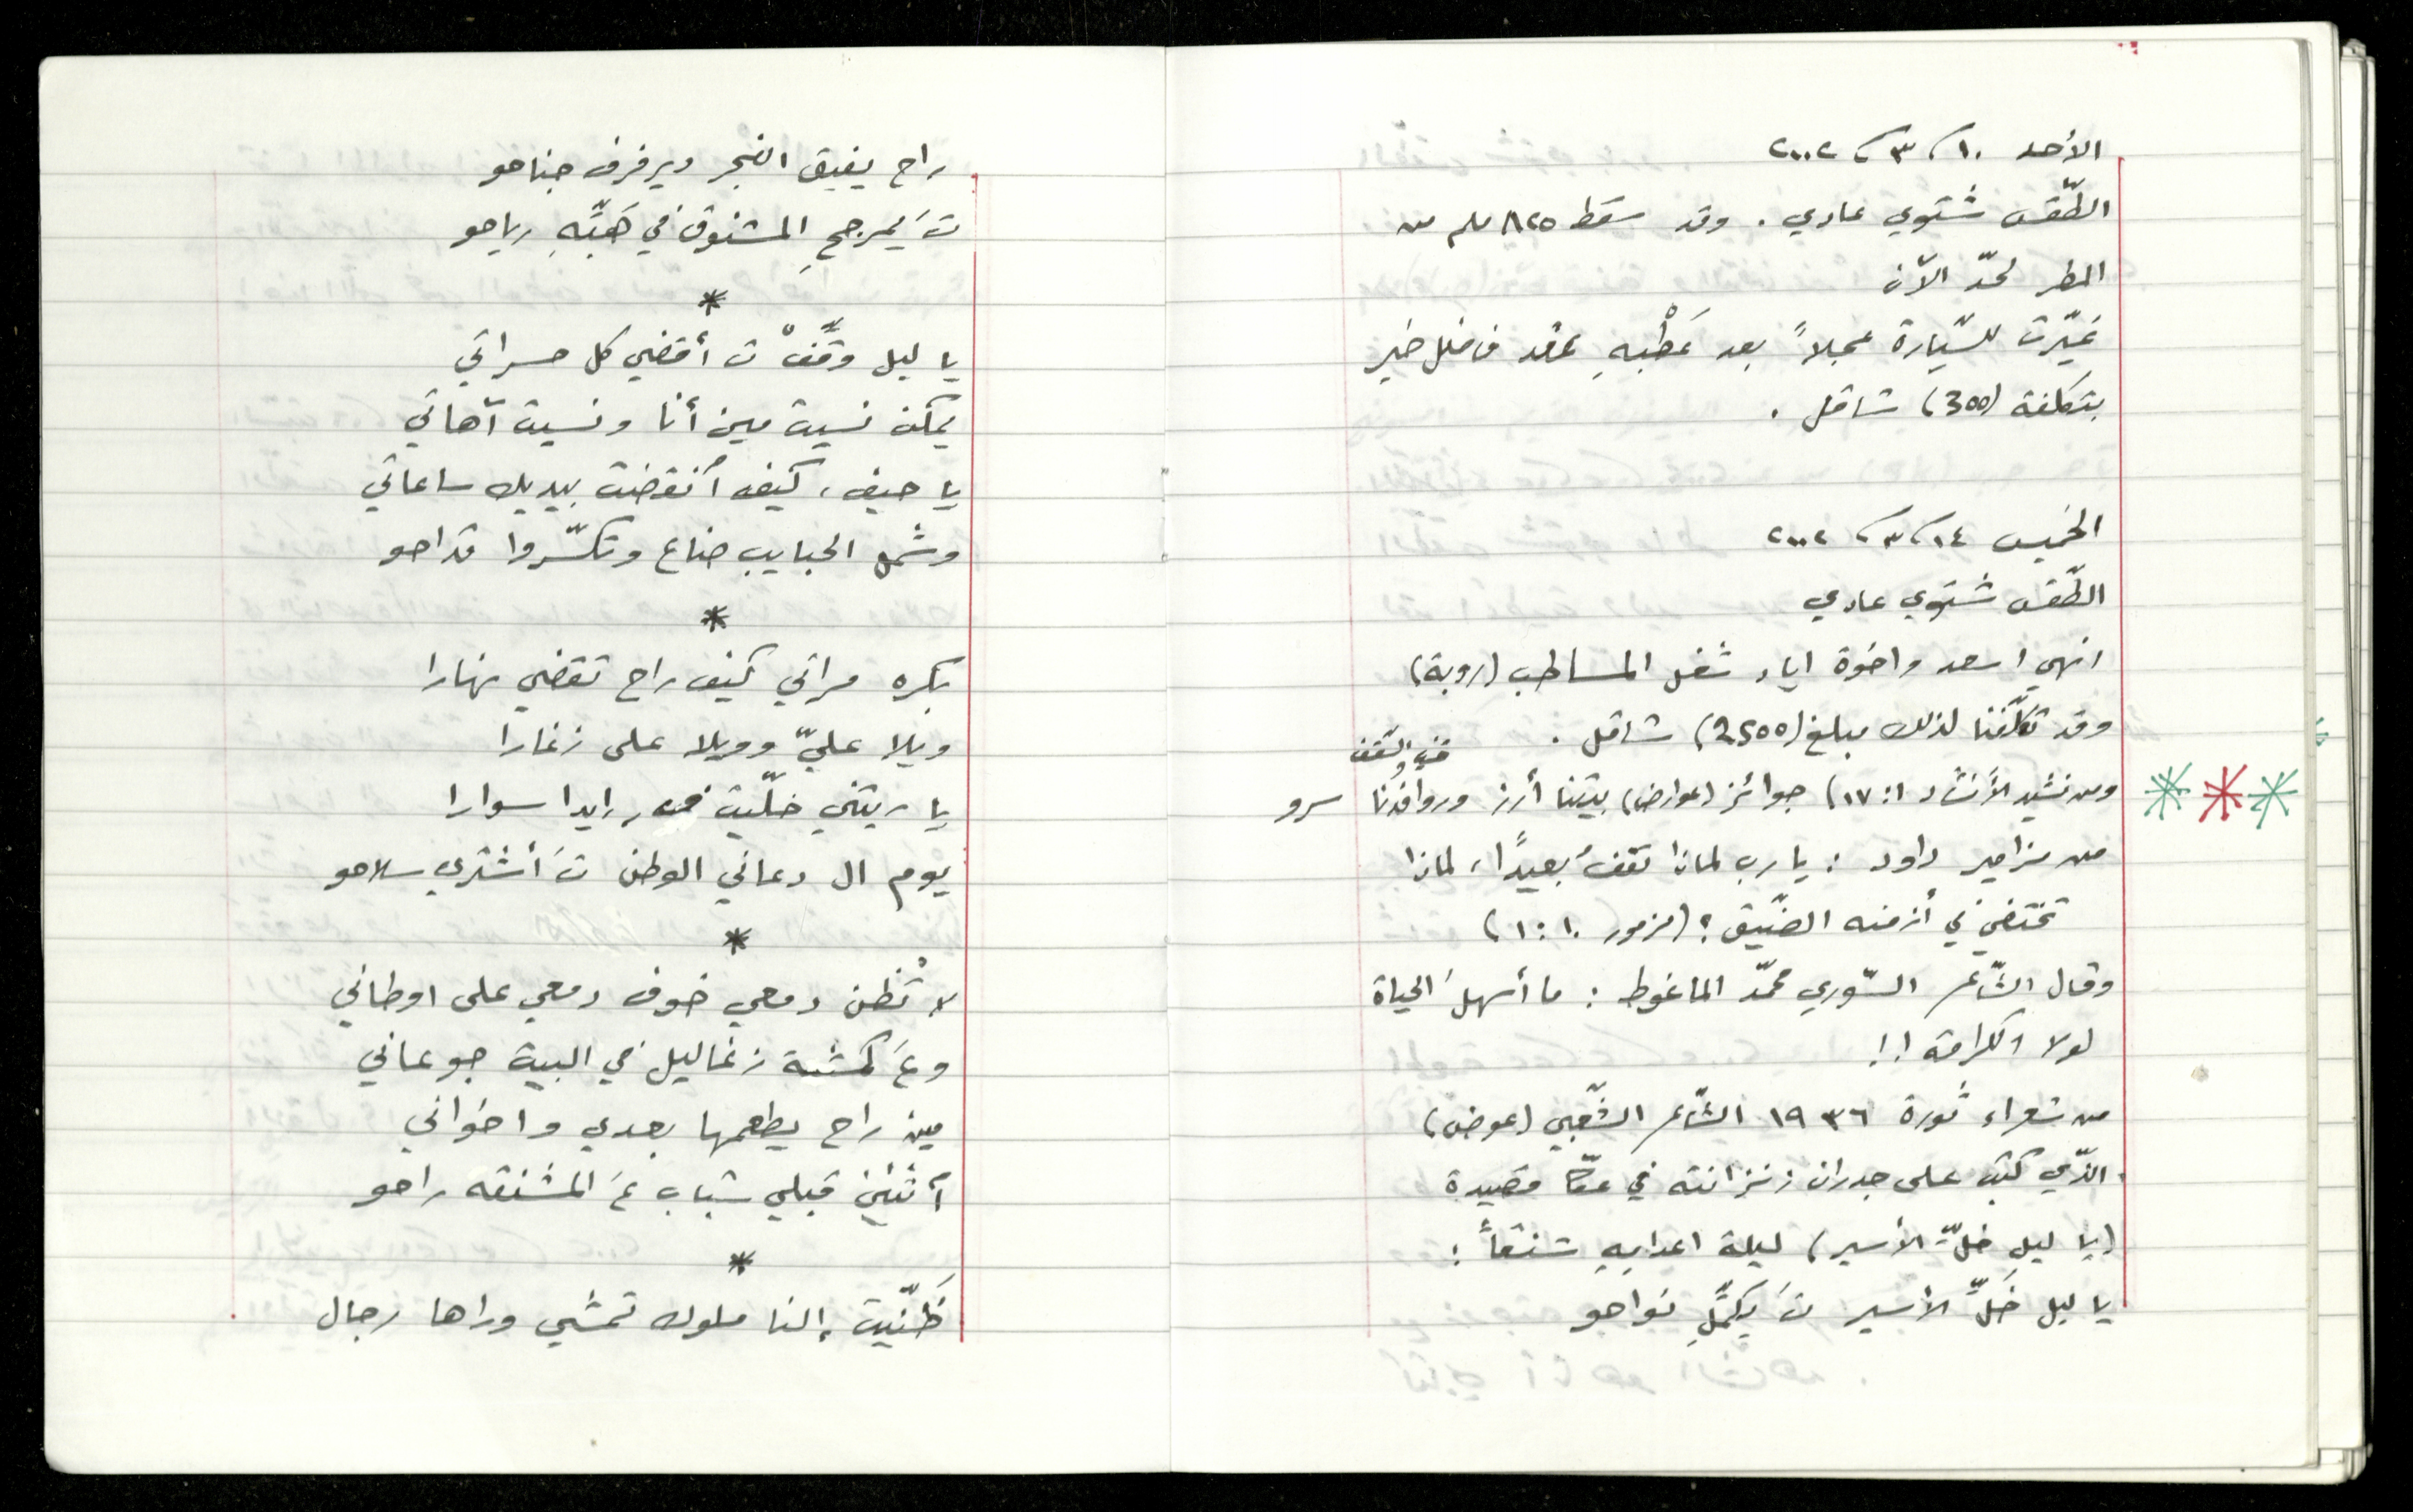 الأحد ١٠، ٣، ٢٠٠٢
الطّقس شتوي عادي. وقد سقط ٨٢٥ ملم من
المطر لحدّ الآن
غيّرت للسّيارة عجلاً بعد عَطْبهِ عند فاضل خير
بتكلفة (300) شاقل.
الخميس ١٤، ٣، ٢٠٠٢
الطّقس شتوي عادي
انهى اسعد واخوة اياد شغل المساطب (روبة)
وقد تكلّفنا لذلك مبلغ (2500) شاقل.
خشب السّقف
ومن نشيد الأنشاد ١: ١٧) جوائز (عوارض) بيتنا أرز وروافدُنا سرو
من مزامير داود: يا رب لماذا تقفُ بعيدًا، لماذا
تختفي في أزمنه الضّيق؟ (مزمور ١٠: ١)
وقال الشّاعر السّوري محمّد الماغوط: ما أسهلَ الحياة
لولا الكرامة!!
من شعراء ثورة ١٩٣٦ الشّاعر الشّعبي (عوض)
الذّي كتب على جدران زنزانته في عكّا قصيدة
(يا ليل خلِّ الأسير) ليلة اعدامِهِ شنقاً:
يا ليل خَلِّ الأسير تَ يكمِّل نواحو
راح يفيق الفجر ويرفرف جناحو
تَ يَمرجحِ المشنوق في هَبِّهِ رياحو
*
يا ليل وقِّفْ ت أقضي كل حسراتي
يمكن نسيت مين أنا ونسيت آهاتي
يا حيف، كيف أنقضت بيديك ساعاتي
وشمل الحبايب ضاع وتكسّروا قداحو
*
بكره مراتي كيف راح تقضي نهارا
ويلا عليّ وويلا على زغارا
يا ريتني خلّيت في رايدا سوارا
يوم ال دعاني الوطن تَ أشتري سلاحو
*
لا تْظن دمعي خوف دمعي على اوطاني
وعَ كمشة زغاليل في البيت جوعاني
مين راح يطعمها بعدي واخواني
أثنين قبلي شباب عَ المشنقه راحو
*
ظَنّيت إلنا ملوك تمشي وراها رجال